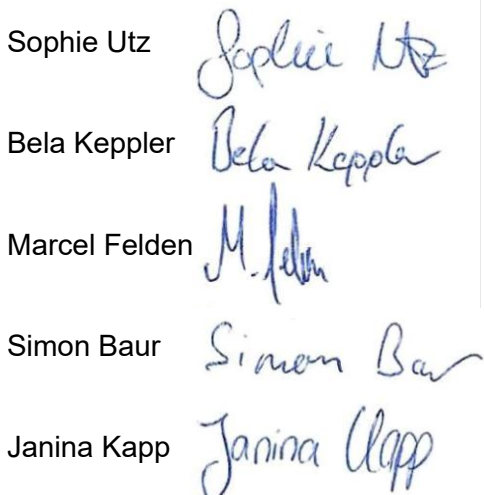 Sophie Utz Sophie Utz
Bela Keppler Bela Keppler
Marcel Felden M. Felden
Simon Baur Simon Baur
Janina Kapp Janina Kapp